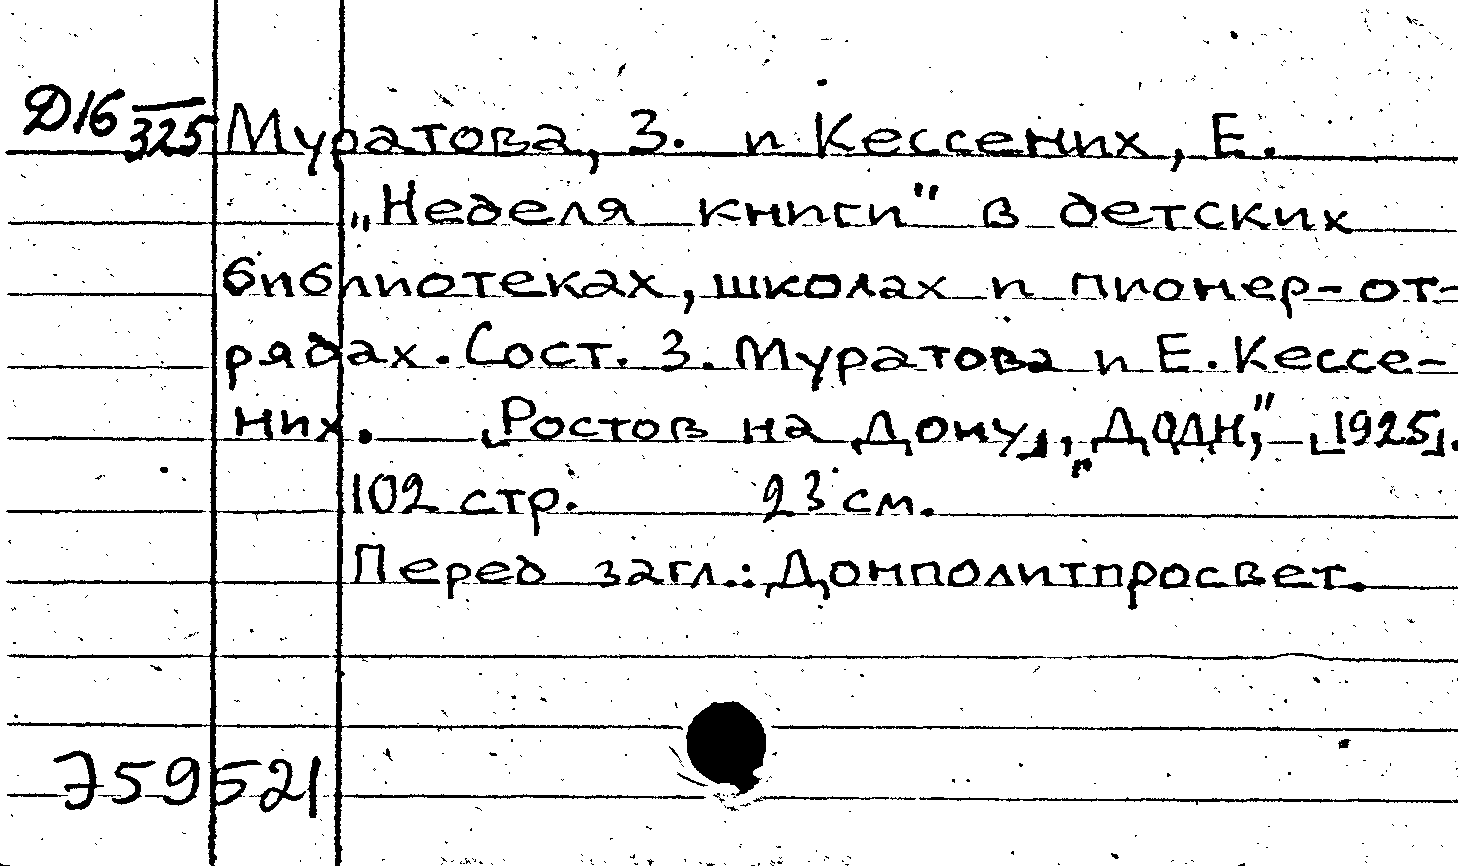 Д16/325 Муратова, З. и Кессених, Е.
„Неделя книги" в детских
библиотеках, школах и пионер-от-
рядах. Сост. З. Муратова и Е. Кессе-
них. [Ростов на Дону], „ДОДН", [1925].
102 стр. 23 см.
Перед загл.: Донполитпросвет.
759521